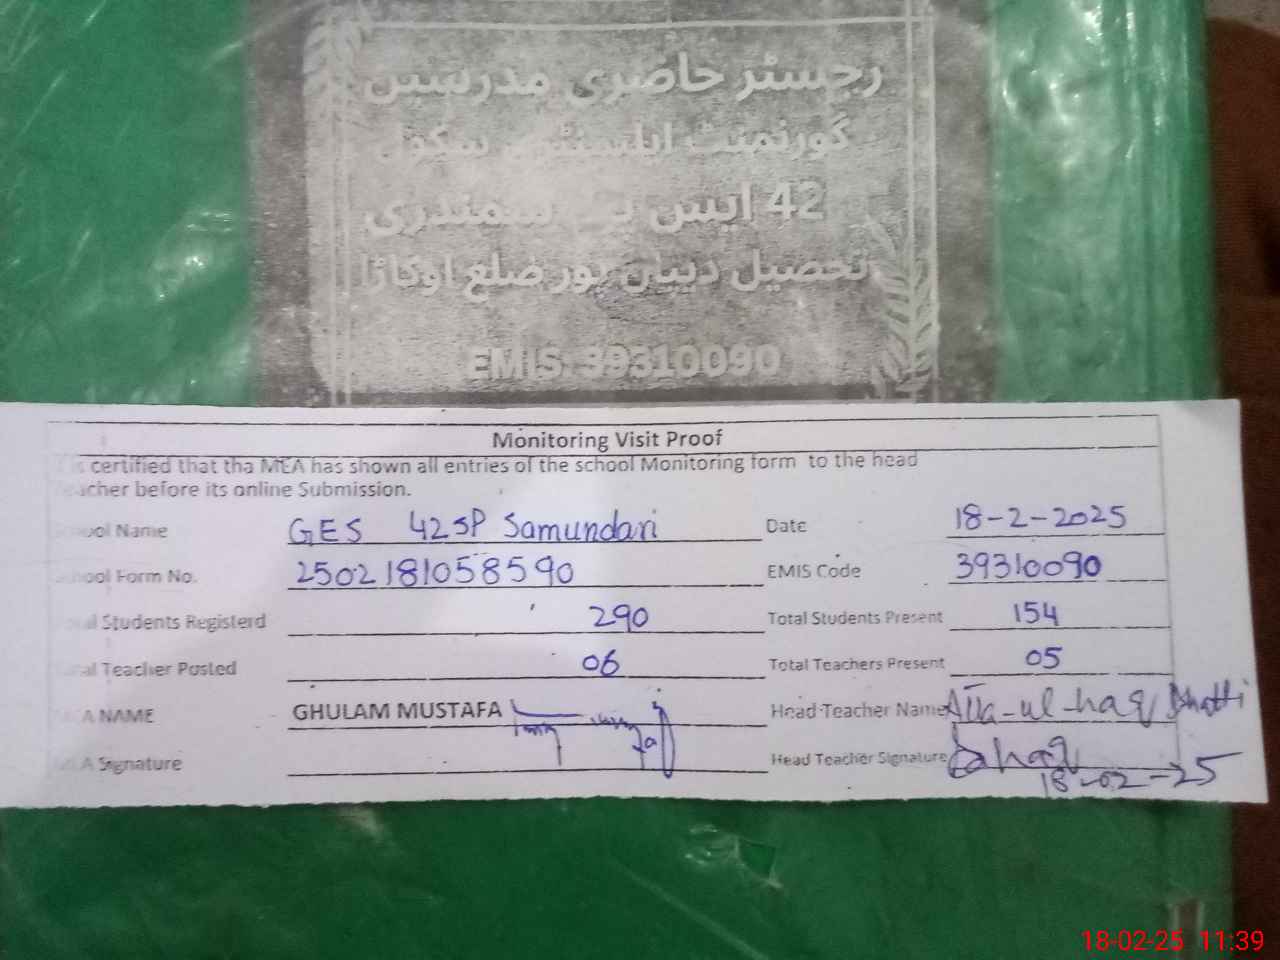 رجسٹر حاضری مدرسین
گورنمنٹ ایلیمنٹری سکول
42 ایس پی سمندری
تحصیل دیپالپور ضلع اوکاڑا
EMIS. 39310090
Monitoring Visit Proof
is certified that tha MEA has shown all entries of the school Monitoring form to the head
teacher before its online Submission.
School Name GES 42 SP Samundari Date 18-2-2025
School Form No. 2502181058590 EMIS Code 39310090
Total Students Registerd 290 Total Students Present 154
Total Teacher Posted 06 Total Teachers Present 05
MEA NAME GHULAM MUSTAFA Head Teacher Name Atta-ul-haq Bhatti
MEA Signature Head Teacher Signature
18-02-25
18-02-25 11:39